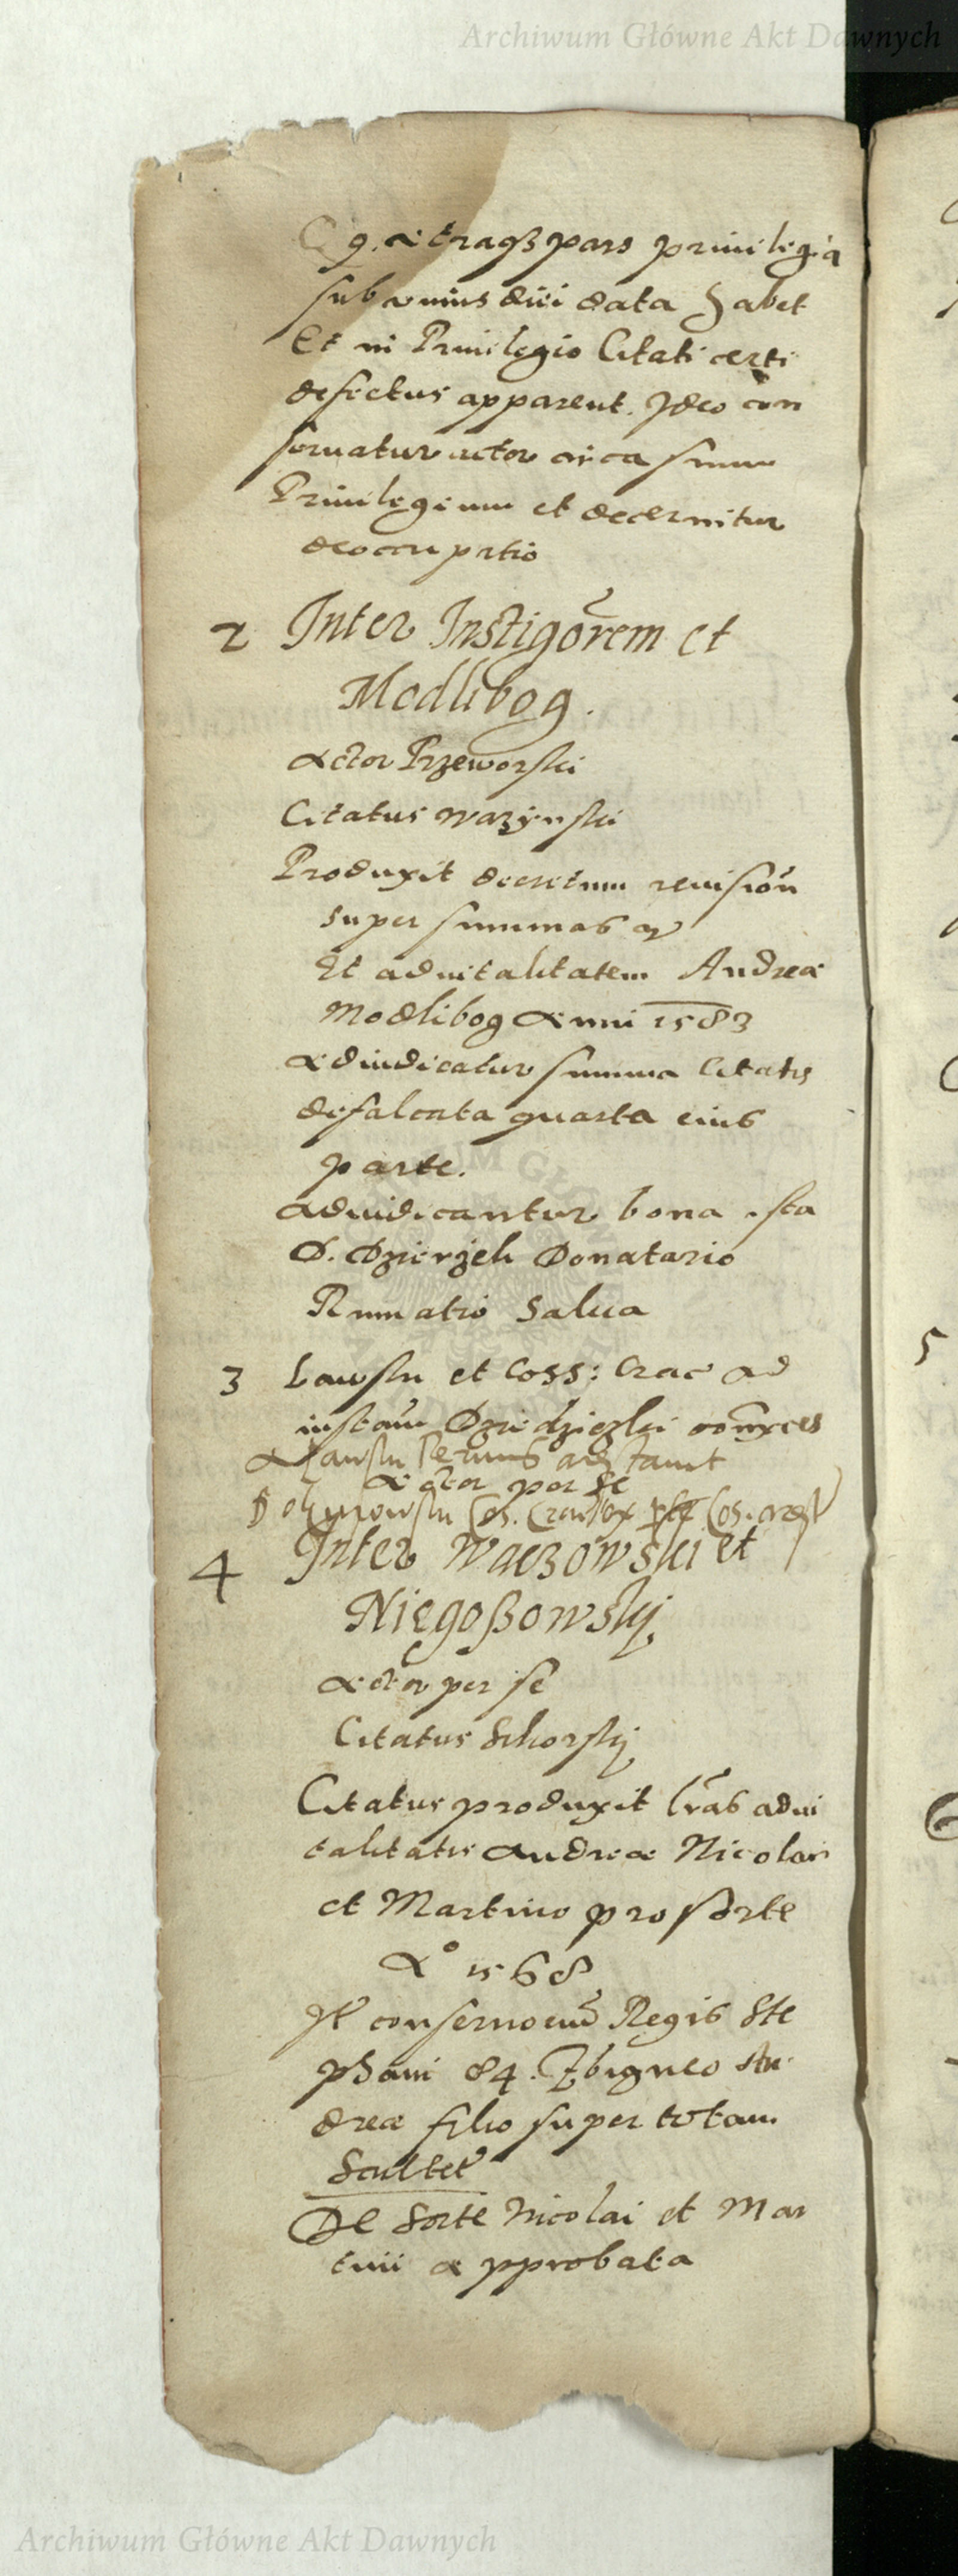 Archiwum Główne Akt Dawnych
utraqз pars privilegia
sub unius diei data habet
Et in Privilegio Citati certi
defectus apparent. Ideo con
servatur actor circa suum
Privilegium et decernitur
deoccupatio
2 Inter Instigōrem et
Modlibog.
Actor Przeworski
Citatus Wazynski
Produxit decretum revision
super summas
Et advitalitatem Andreæ
Modlibog Anni 1583
Adiudicatur summa Citatis
defalcata quarta eius
parte.
adiudicantur bona ista
D. Dzierżek Donatario
Rumatio Salva
3 et Coss: Crac ad
Dziedziczki
Actor per se
4 Inter Waczowski et
Niegoßowskij
Actor per se
Citatus Sikorskij
Citatus produxit lr̄as advi
talitatis Andreæ Nicolai
et Martino pro sorte
A° 1568
It consensum Regis Ste
phani 84. Zbigneo An
dreæ filio super totam
Scultet
De sorte Nicolai et Mar
tini approbata
5
Archiwum Główne Akt Dawnych